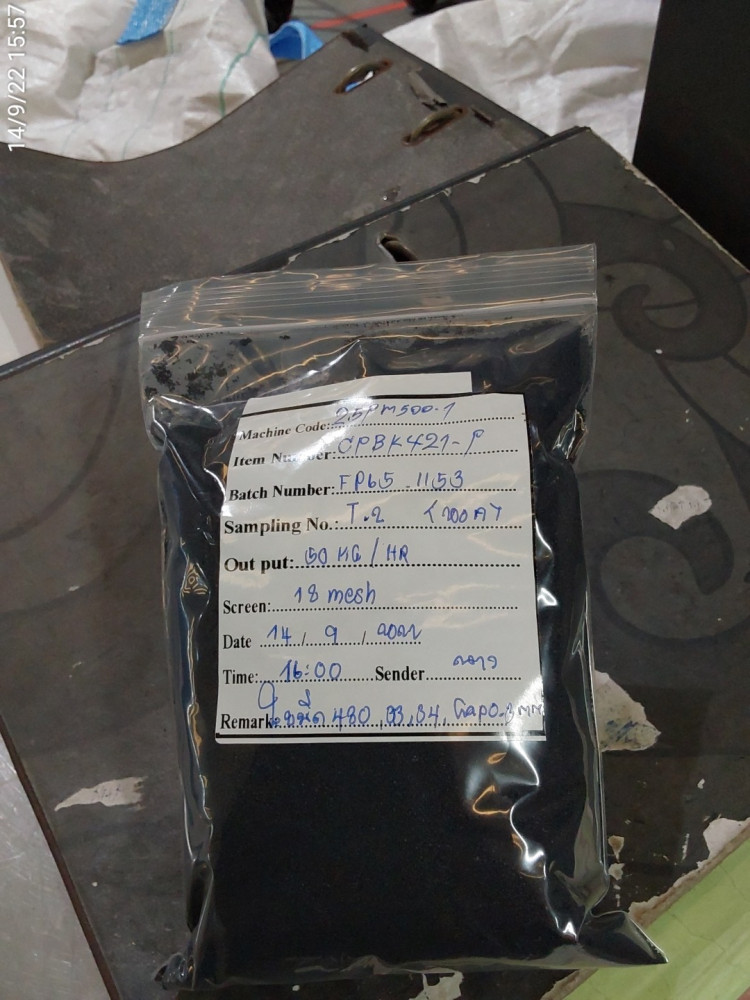 14/9/22 15:57
Machine Code: 25PM500-1
Item Number: CPBK421-P
Batch Number: FP65-1153
Sampling No.: T.2
Out put: 50 KG / HR
Screen: 18 mesh
Date 14 / 9 / 2022
Time: 16:00 Sender
Remark: ใบมีด 480, 33, 34, Gap 0.3 mm